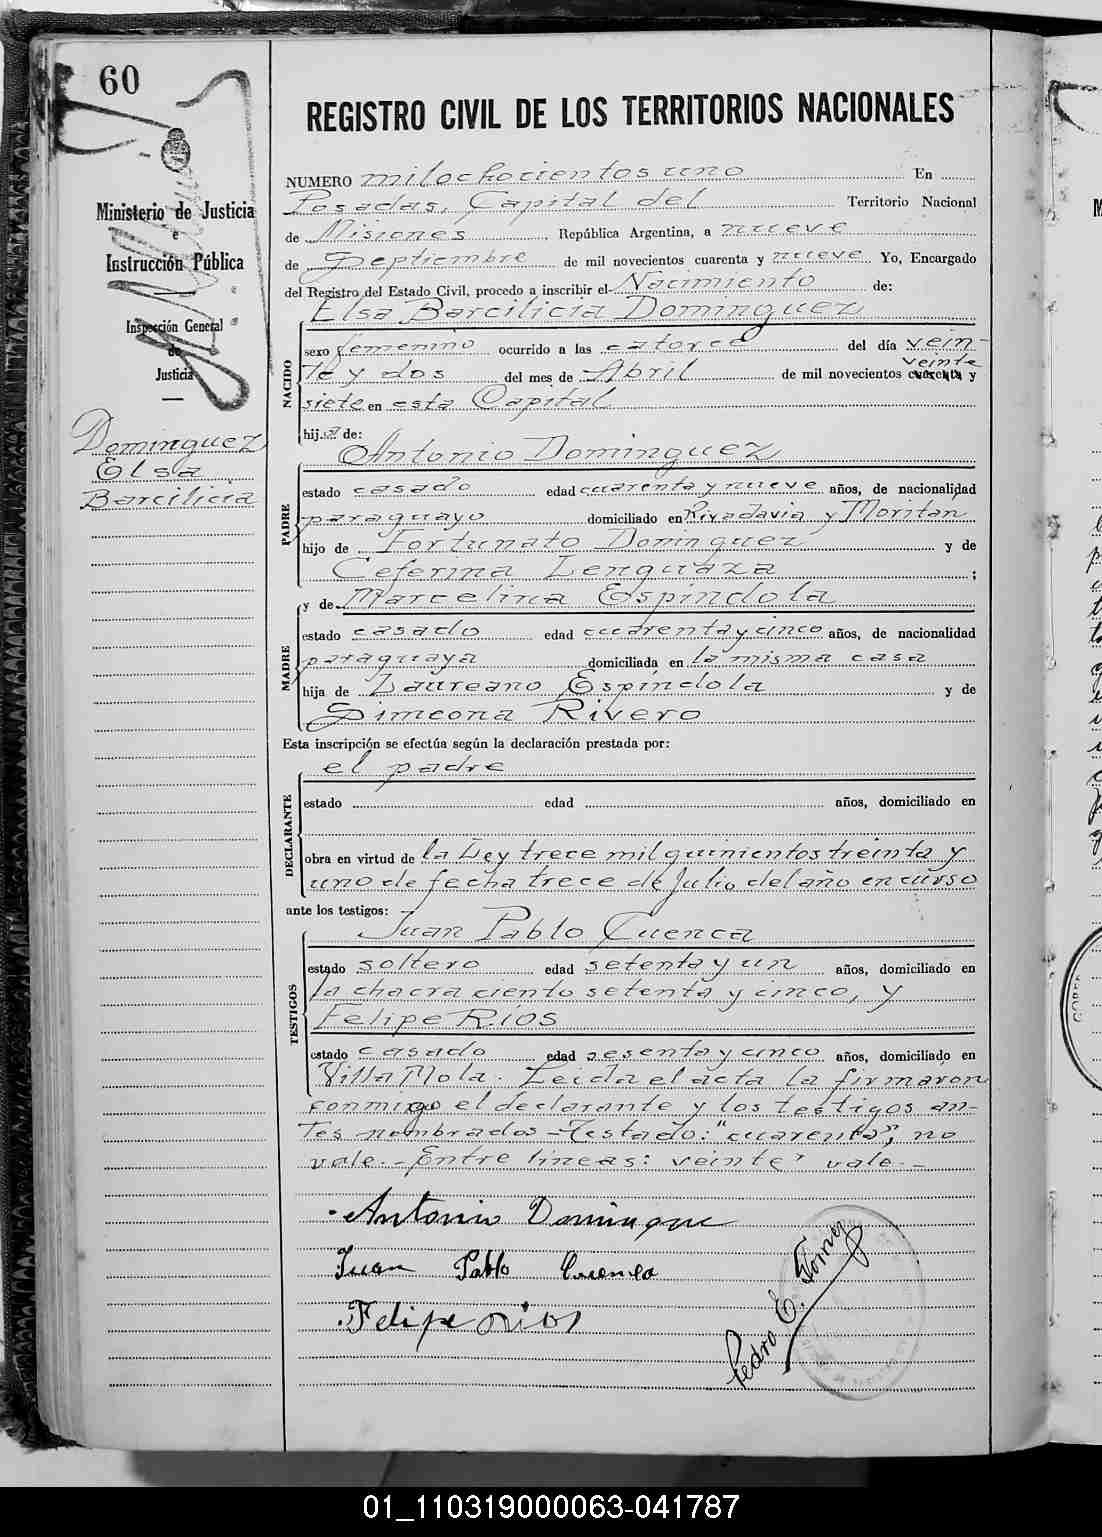 60
Ministerio de Justicia
e
Instrucción Pública
Inspección General
de
Justicia
Dominguez
Elsa
Barcilicia
REGISTRO CIVIL DE LOS TERRITORIOS NACIONALES
NUMERO milochocientos uno En
Posadas, Capital del Territorio Nacional
de Misiones, República Argentina, a nueve
de Septiembre de mil novecientos cuarenta y nueve Yo, Encargado
del Registro del Estado Civil, procedo a inscribir el Nacimiento de:
Elsa Barcilicia Dominguez
NACIDO
sexo femenino ocurrido a las catorce del día vein-
te y dos del mes de Abril de mil novecientos cuarenta veinte y
siete en esta Capital
hija de:
Antonio Dominguez
PADRE
estado casado edad cuarenta y nueve años, de nacionalidad
paraguayo domiciliado en Rivadavia y Moritán
hijo de Fortunato Dominguez y de
Ceferina Lenguaza ;
y de Marcelina Espíndola
MADRE
estado casado edad cuarenta y cinco años, de nacionalidad
paraguaya domiciliada en la misma casa
hija de Laureano Espíndola y de
Simeona Rivero
Esta inscripción se efectúa según la declaración prestada por:
el padre
DECLARANTE
estado edad años, domiciliado en
obra en virtud de la Ley trece mil quinientos treinta y
uno de fecha trece de Julio del año en curso
ante los testigos:
Juan Pablo Cuenca
TESTIGOS
estado soltero edad setenta y un años, domiciliado en
la chacra ciento setenta y cinco, y
Felipe Rios
estado casado edad sesenta y cinco años, domiciliado en
Villa Mola. Leida el acta la firmaron
conmigo el declarante y los testigos an-
tes nombrados - Testado: "cuarenta", no
vale. - Entre lineas: veinte" vale. -
Antonio Domingue
Juan Pablo Cuenca
Felipe Rios
Pedro E. Gomez
01_110319000063-041787